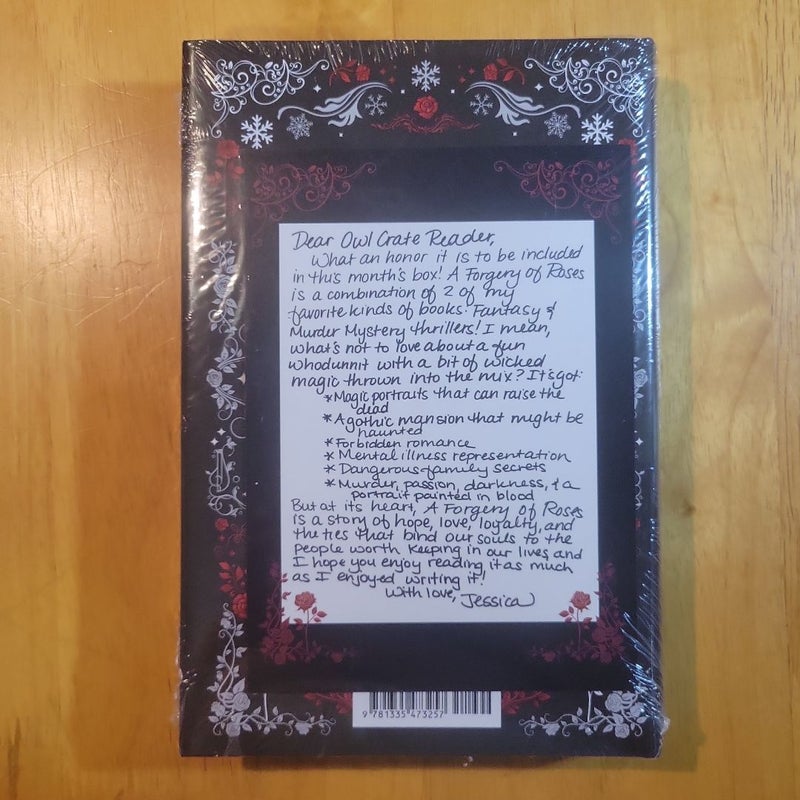 Dear Owl Crate Reader,
What an honor it is to be included
in this month's box! A Forgery of Roses
is a combination of 2 of my
favorite kinds of books: Fantasy &
Murder Mystery thrillers! I mean,
what's not to love about a fun
whodunnit with a bit of wicked
magic thrown into the mix? It's got:
* Magic portraits that can raise the
dead
* A gothic mansion that might be
haunted
* Forbidden romance
* Mental illness representation
* Dangerous family secrets
* Murder, passion, darkness, & a
portrait painted in blood
But at its heart, A Forgery of Roses
is a story of hope, love, loyalty, and
the ties that bind our souls to the
people worth keeping in our lives, and
I hope you enjoy reading it as much
as I enjoyed writing it!
With love, Jessica
9 781335 473257